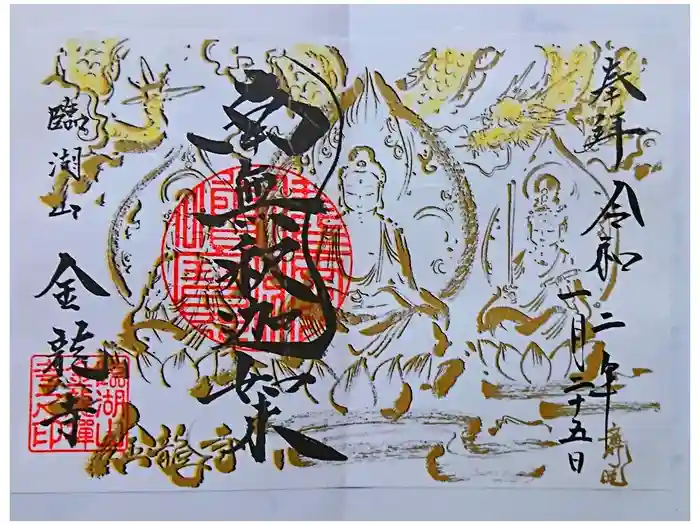 奉拝
令和二年
十一月二十五日
南無釈迦如来
臨湖山
金龍寺
金龍寺